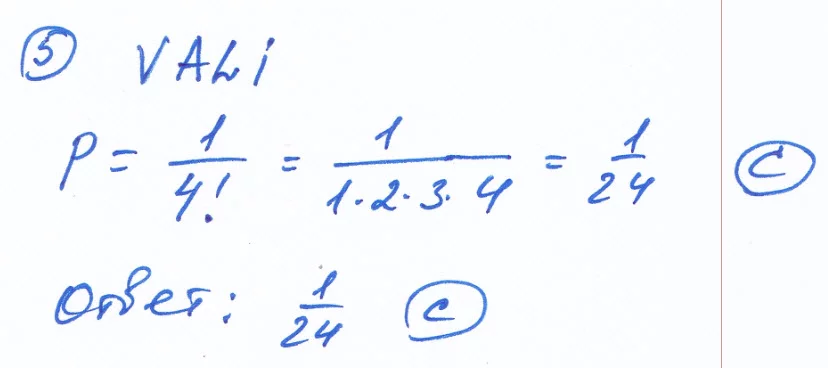 5 VALI
P = 1/4! = 1/(1·2·3·4) = 1/24 C
Ответ: 1/24 C